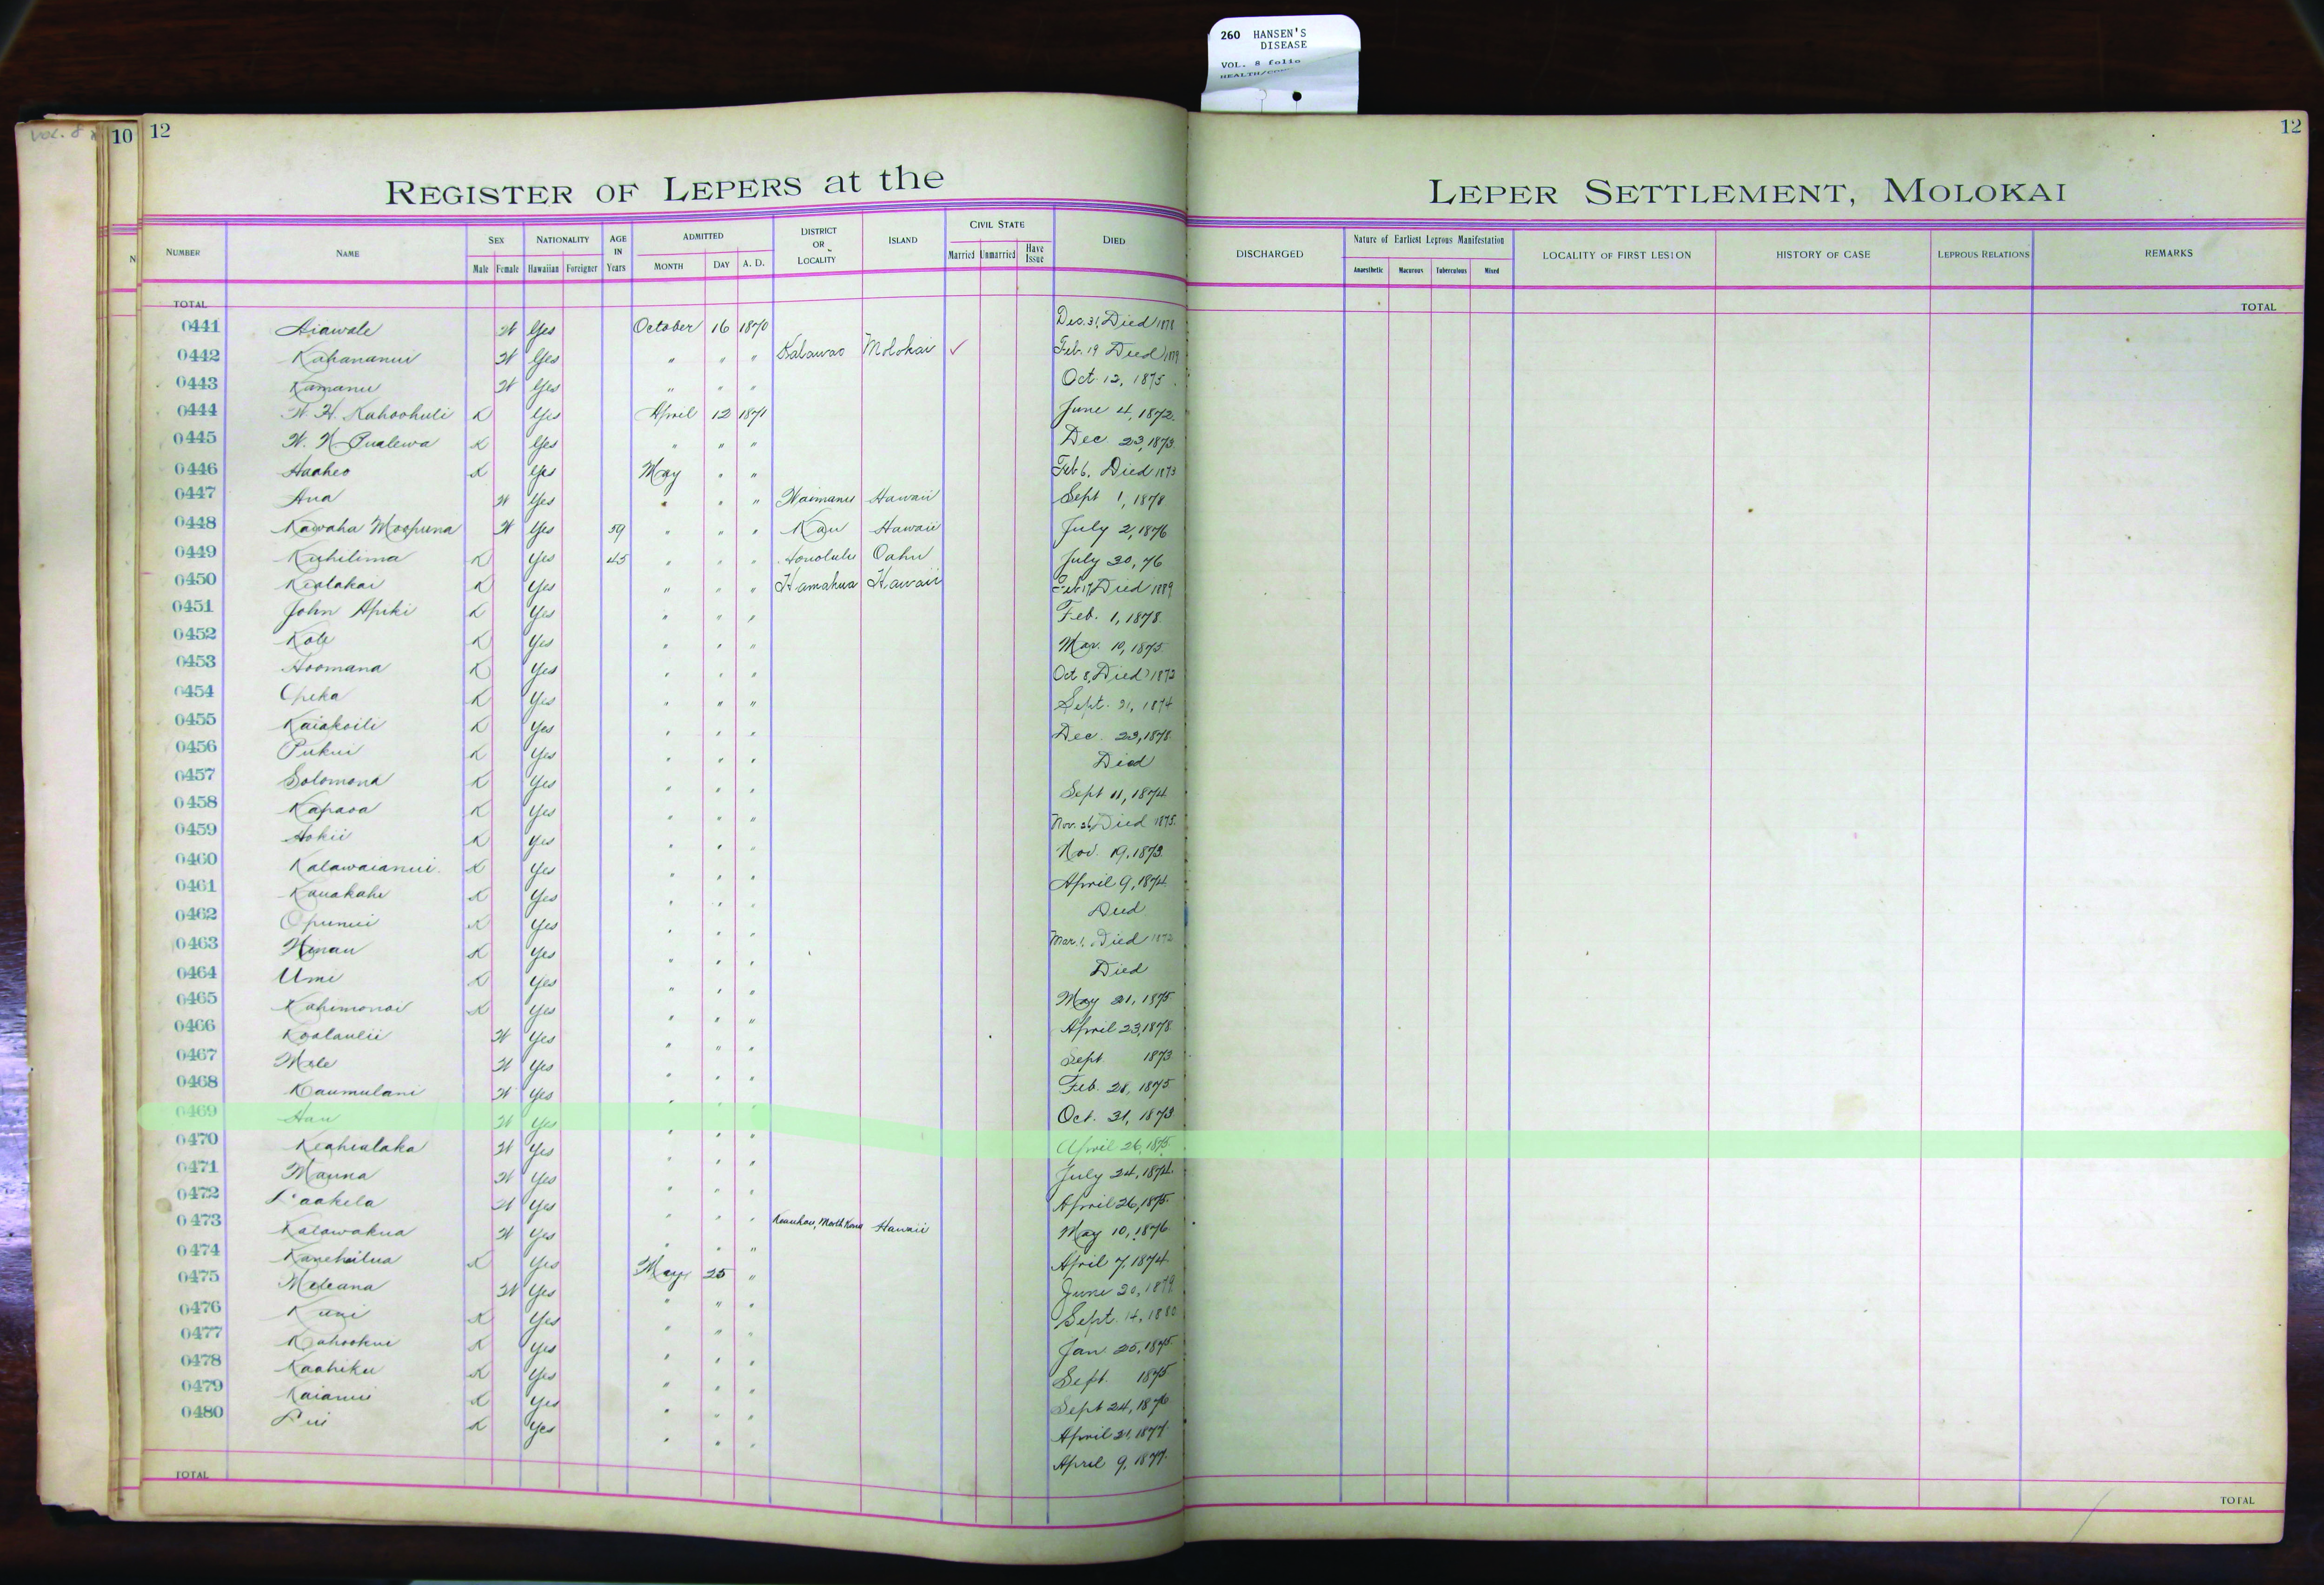 260 HANSEN'S
DISEASE
VOL. 8 folio
VOL. 8
10
12
12
REGISTER OF LEPERS at the
LEPER SETTLEMENT, MOLOKAI
NUMBER NAME SEX Male Female NATIONALITY Hawaiian Foreigner AGE IN Years ADMITTED MONTH DAY A. D. DISTRICT OR LOCALITY ISLAND CIVIL STATE Married Unmarried Have Issue DIED
DISCHARGED Nature of Earliest Leprous Manifestation Anaesthetic Macurous Tuberculous Mixed LOCALITY OF FIRST LESION HISTORY OF CASE LEPROUS RELATIONS REMARKS
TOTAL
TOTAL
0441 Aiawale W Yes October 16 1870 Dec. 31, Died 1878
0442 Kahananui W Yes " " " Kalawao Molokai ✓ Feb. 19 Died
0443 Kamanu W Yes " " " Oct. 12, 1875
0444 W. H. Kahoohuli K Yes April 12 1871 June 4, 1872
0445 W. N. Pualewa K Yes " " " Dec. 23, 1873
0446 Haaheo K Yes May " " Feb 6, Died 1873
0447 Ana W Yes " " " Waimanu Hawaii Sept 1, 1878
0448 Kawaha Moopuna W Yes 59 " " " Kau Hawaii July 2, 1876
0449 Kuhilima K Yes 45 " " " Honolulu Oahu July 30, 76
0450 Kealakai K Yes " " " Hamakua Hawaii Feb 17, Died 1889
0451 John Apiki K Yes " " " Feb. 1, 1878
0452 Kole K Yes " " " Mar. 10, 1875
0453 Hoomana K Yes " " " Oct 8, Died 1873
0454 Opeka K Yes " " " Sept. 21, 1874
0455 Kaiakoili K Yes " " " Dec. 23, 1878
0456 Pukui K Yes " " " Died
0457 Solomona K Yes " " " Sept 11, 1874
0458 Kapaoa K Yes " " " Nov. 26, Died 1875
0459 Hokii K Yes " " " Nov. 19, 1873
0460 Kalawaianui K Yes " " " April 9, 1874
0461 Kauakahi K Yes " " " Died
0462 Opunui K Yes " " " Mar. 1, Died 1872
0463 Hinau K Yes " " " Died
0464 Umi K Yes " " " May 21, 1875
0465 Kahimonoi K Yes " " " April 23, 1878
0466 Koolaulii W Yes " " " Sept 1873
0467 Mele W Yes " " " Feb. 28, 1875
0468 Kaumulani W Yes " " " Oct. 31, 1873
0469 Hau W Yes " " " April 26, 1875
0470 Keahialaka W Yes " " " July 24, 1874
0471 Mauna W Yes " " " April 26, 1875
0472 Laakela W Yes " " " Keauhou, North Kona Hawaii May 10, 1876
0473 Kalawakua W Yes " " " April 7, 1874
0474 Kanehailua K Yes May 25 " June 20, 1879
0475 Meleana W Yes " " " Sept. 14, 1880
0476 Kuni K Yes " " " Jan 25, 1875
0477 Kahookui K Yes " " " Sept. 1875
0478 Kaahiku K Yes " " " Sept 24, 1876
0479 Kaianui K Yes " " " April 21, 1877
0480 Pui K Yes " " " April 9, 1877
TOTAL
TOTAL